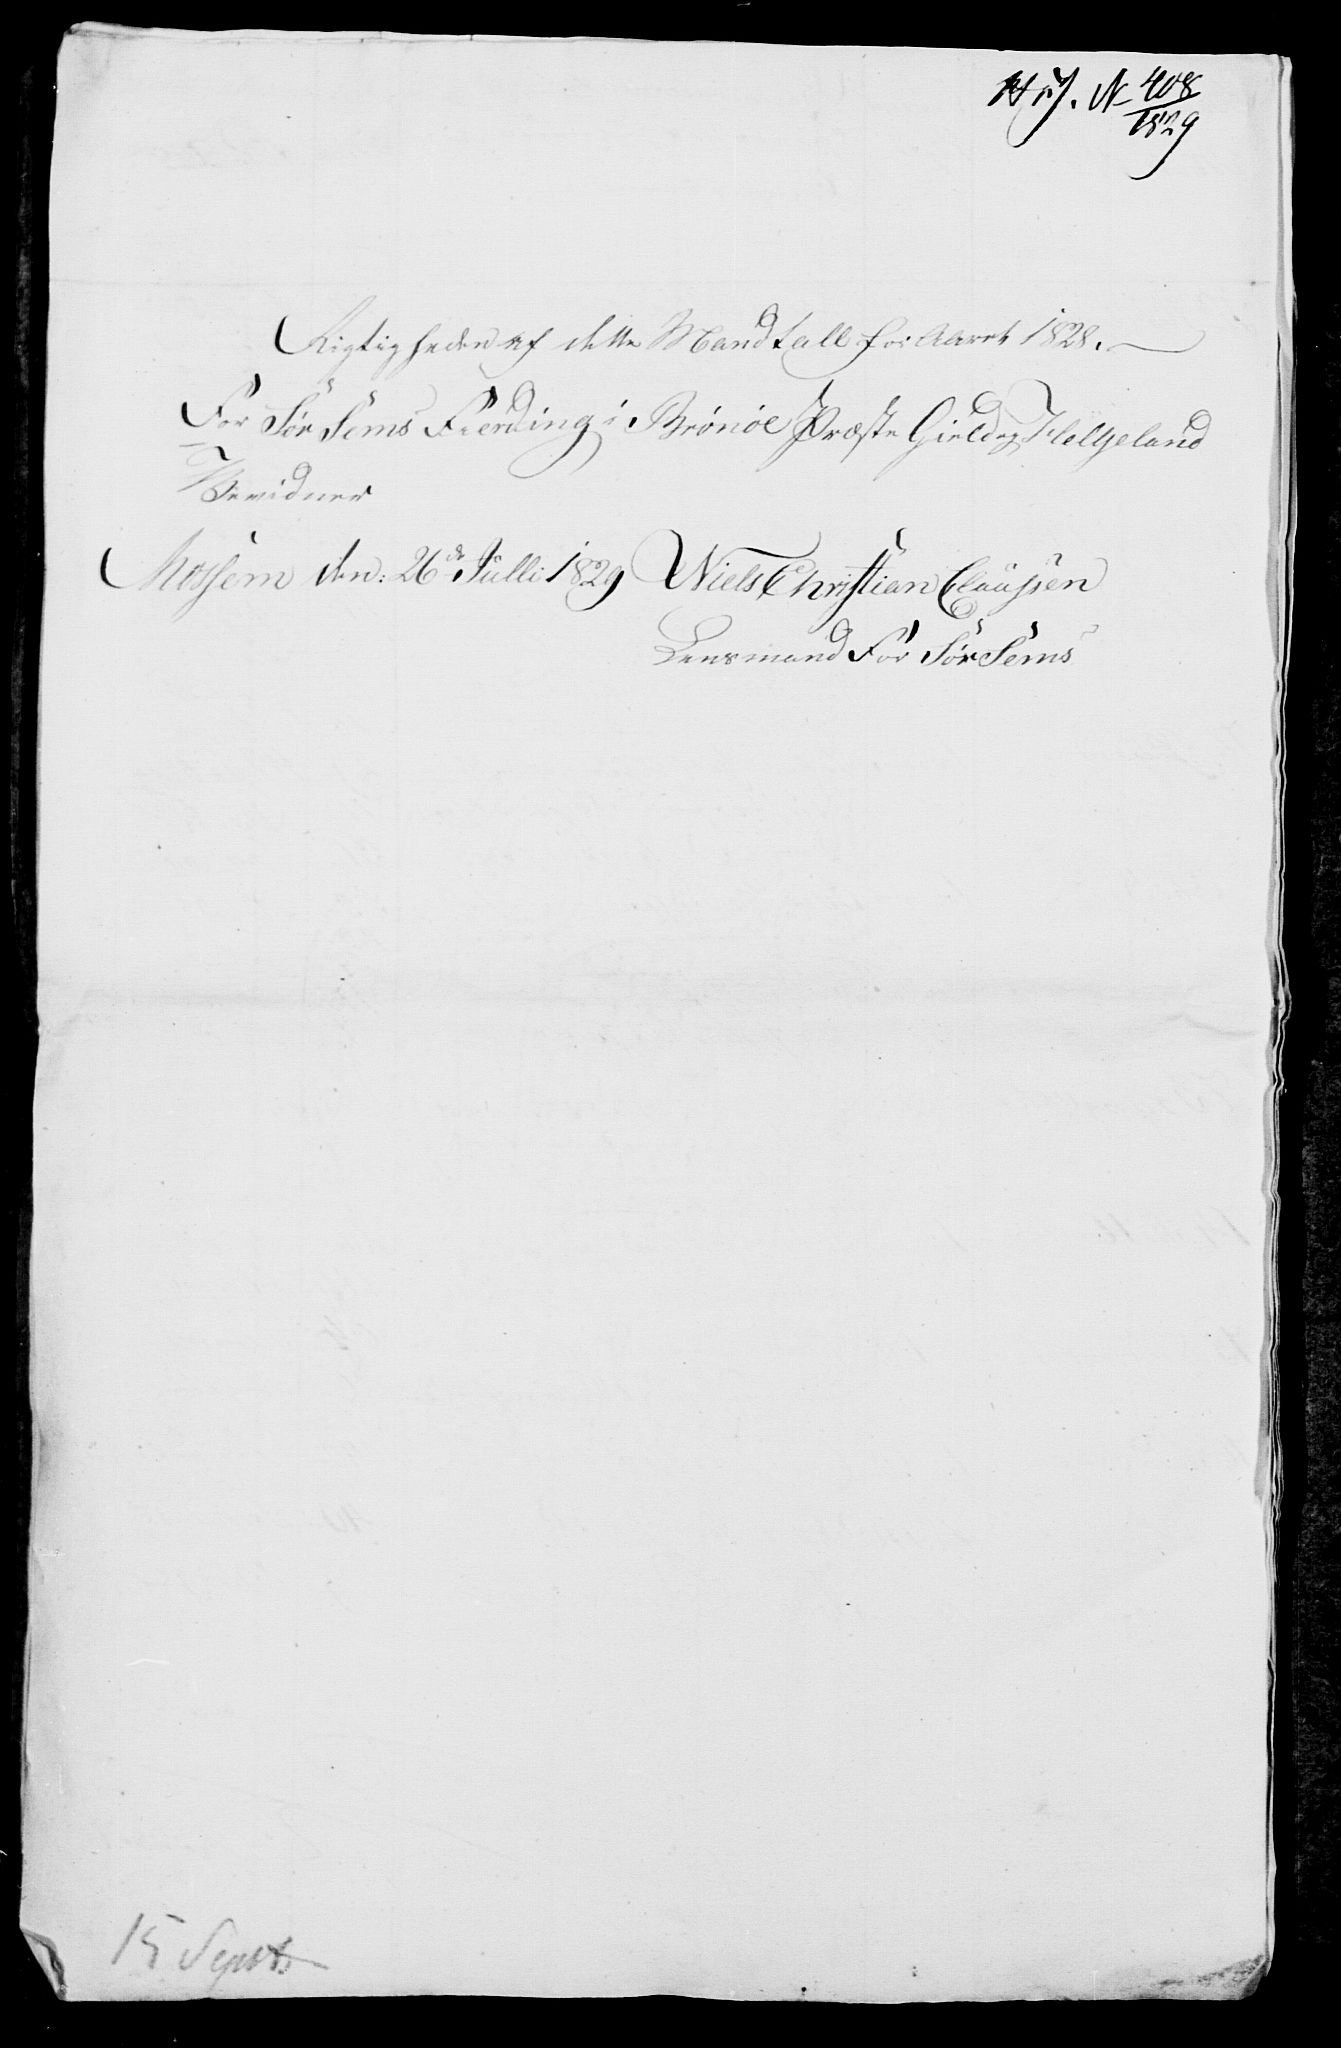 N 408
1829
Rigtigheden af dette Mandtall for Aaret 1828.
For Sør Sems Fierding i Brønøe Præste Gield og Helgeland
Bevidner
Mossem den: 26de Julli 1829 Niels Christian Clausen
Lensmand For Sør Sems
15 Septb